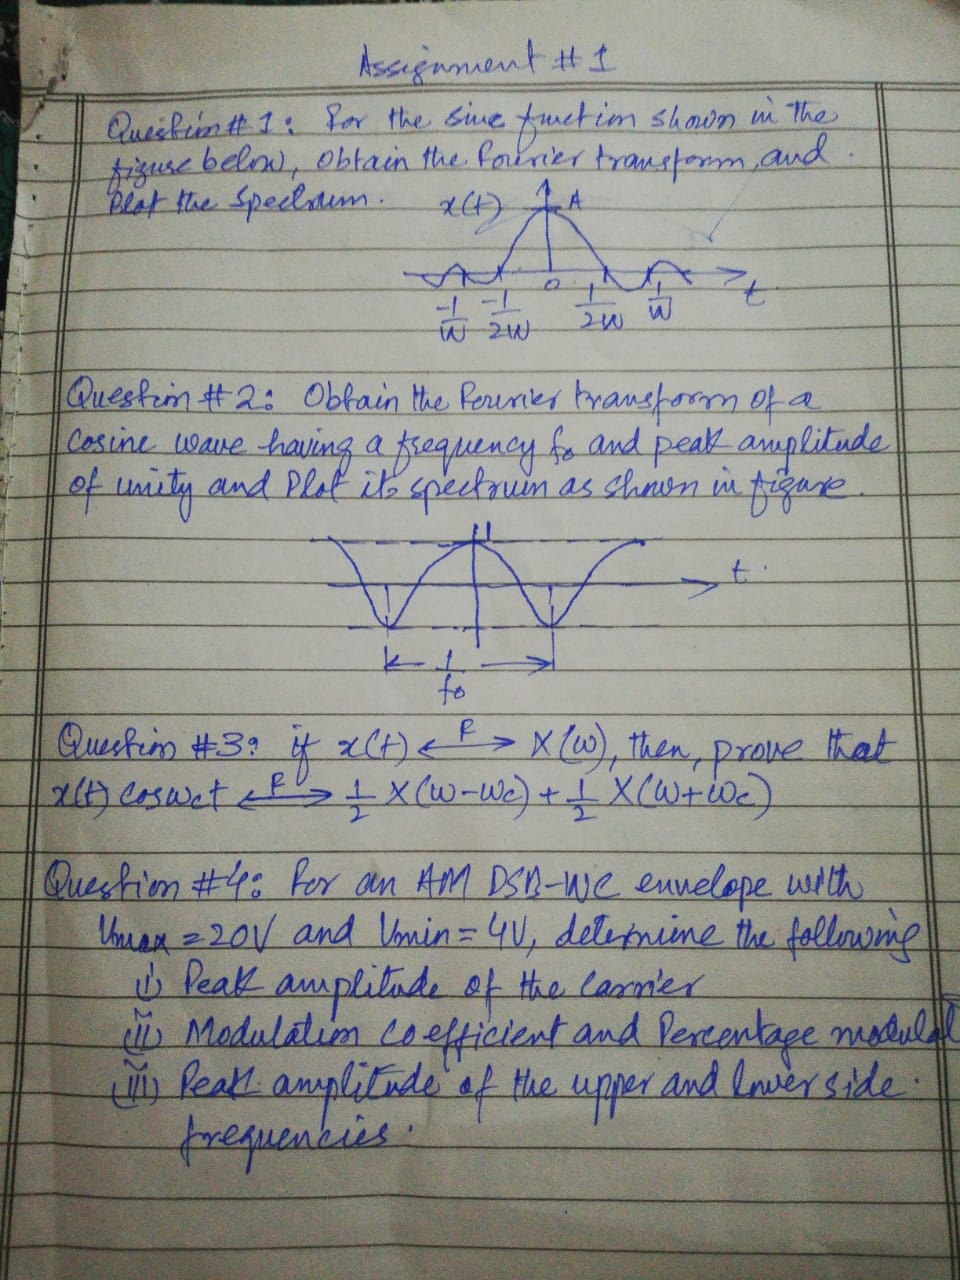 Assignment # 1
Question # 1: For the sinc function shown in the
figure below, obtain the Fourier transform, and
Plot the Spectrum.
x(t) A
0 t
-1/W -1/2W 1/2W 1/W
Question # 2: Obtain the Fourier transform of a
cosine wave having a frequency fo and peak amplitude
of unity and Plot its spectrum as shown in figure.
1
t
1/fo
Question #3: if x(t) <—F—> X(ω), then, prove that
x(t) cosωct <—F—> 1/2 X(ω-ωc) + 1/2 X(ω+ωc)
Question #4: For an AM DSB-WC envelope with
Vmax = 20V and Vmin = 4V, determine the following
(i) Peak amplitude of the Carrier
(ii) Modulation coefficient and Percentage modulat
(iii) Peak amplitude of the upper and lower side
frequencies.